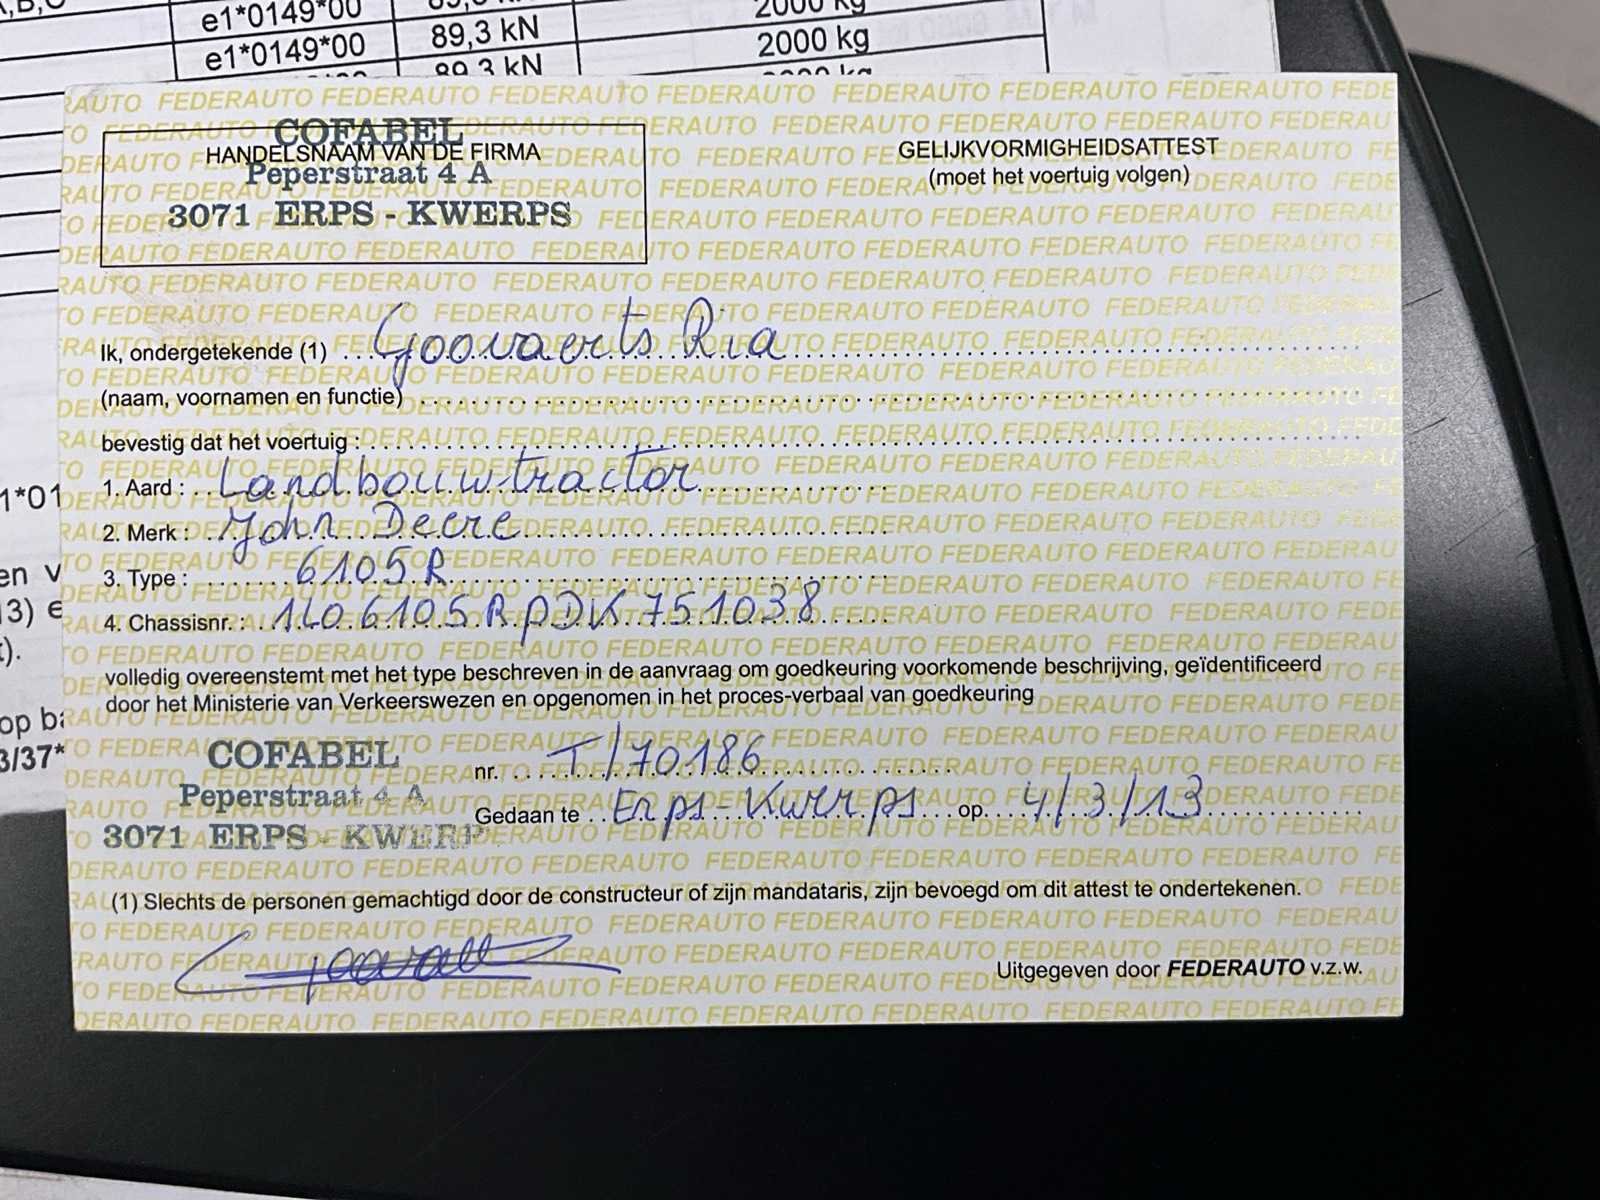 A,B,C e1*0149*00 2000 kg
e1*0149*00 89,3 kN 2000 kg
89,3 kN
COFABEL
HANDELSNAAM VAN DE FIRMA
Peperstraat 4 A
3071 ERPS - KWERPS
GELIJKVORMIGHEIDSATTEST
(moet het voertuig volgen)
Ik, ondergetekende (1) Goovaerts Ria
(naam, voornamen en functie)
bevestig dat het voertuig :
1. Aard : Landbouwtractor
2. Merk : John Deere
3. Type : 6105R
4. Chassisnr. : 1L06105RPDK751038
volledig overeenstemt met het type beschreven in de aanvraag om goedkeuring voorkomende beschrijving, geïdentificeerd
door het Ministerie van Verkeerswezen en opgenomen in het proces-verbaal van goedkeuring
COFABEL
Peperstraat 4 A
3071 ERPS - KWERP
nr. T/70186
Gedaan te Erps-Kwerps op 4/3/13
(1) Slechts de personen gemachtigd door de constructeur of zijn mandataris, zijn bevoegd om dit attest te ondertekenen.
Uitgegeven door FEDERAUTO v.z.w.
FEDERAUTO FEDERAUTO FEDERAUTO FEDERAUTO FEDERAUTO FEDERAUTO FEDERAUTO
1*01
en v
13) e
op ba
3/37*